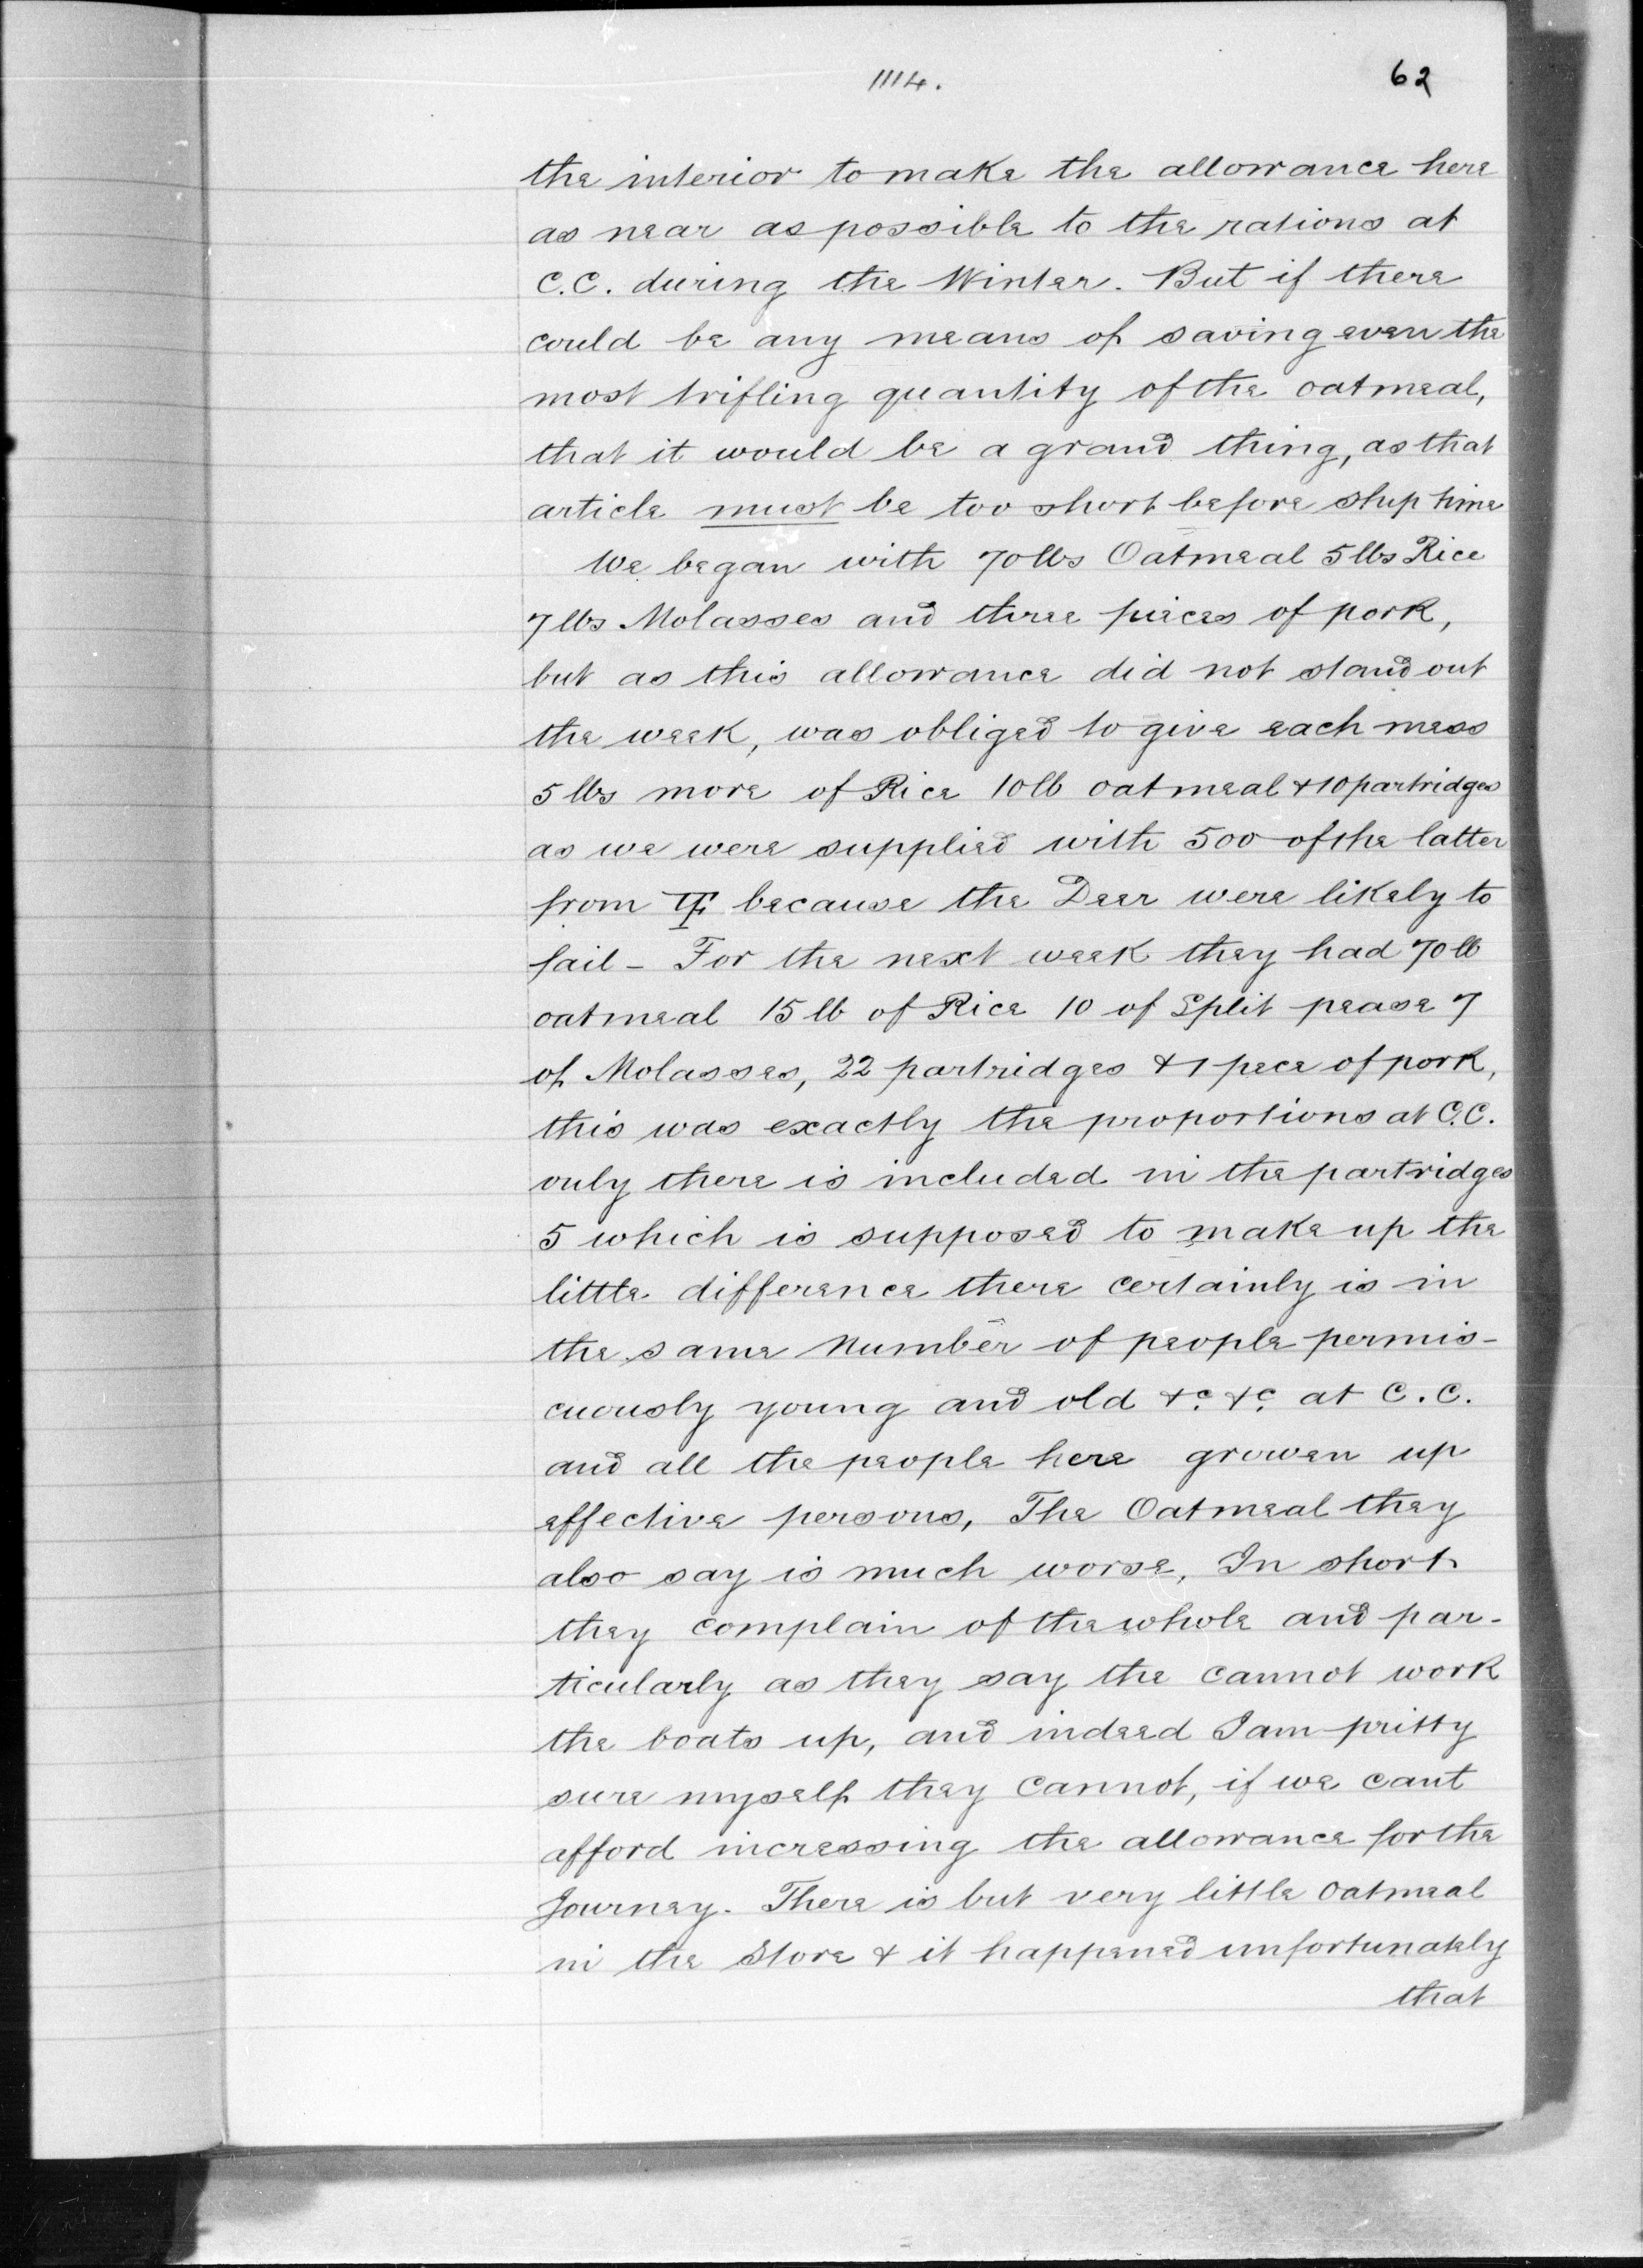 1114.
62
the interior to make the allowance here
as near as possible to the rations at
C.C. during the Winter. But if there
could be any means of saving even the
most trifling quantity of the oatmeal,
that it would be a grand thing, as that
article must be too short before ship time
We began with 70lbs Oatmeal 5lbs Rice
7lbs Molasses and three pieces of pork,
but as this allowance did not stand out
the week, was obliged to give each mess
5 lbs more of Rice 10lb oatmeal & 10 partridges
as we were supplied with 500 of the latter
from YF because the Deer were likely to
fail - For the next week they had 70 lb
oatmeal 15 lb of Rice 10 of Split pease 7
of Molasses, 22 partridges & 1 pece of pork,
this was exactly the proportions at C.C.
only there is included in the partridges
5 which is supposed to make up the
little difference there certainly is in
the same number of people permis-
cuously young and old &c. &c. at C.C.
and all the people here growen up
effective persons, The Oatmeal they
also say is much worse, In short
they complain of the whole and par-
ticularly as they say the cannot work
the boats up, and indeed I am pritty
sure myself they cannot, if we cant
afford incressing the allowance for the
Journey. There is but very little oatmeal
in the Store & it happened unfortunately
that